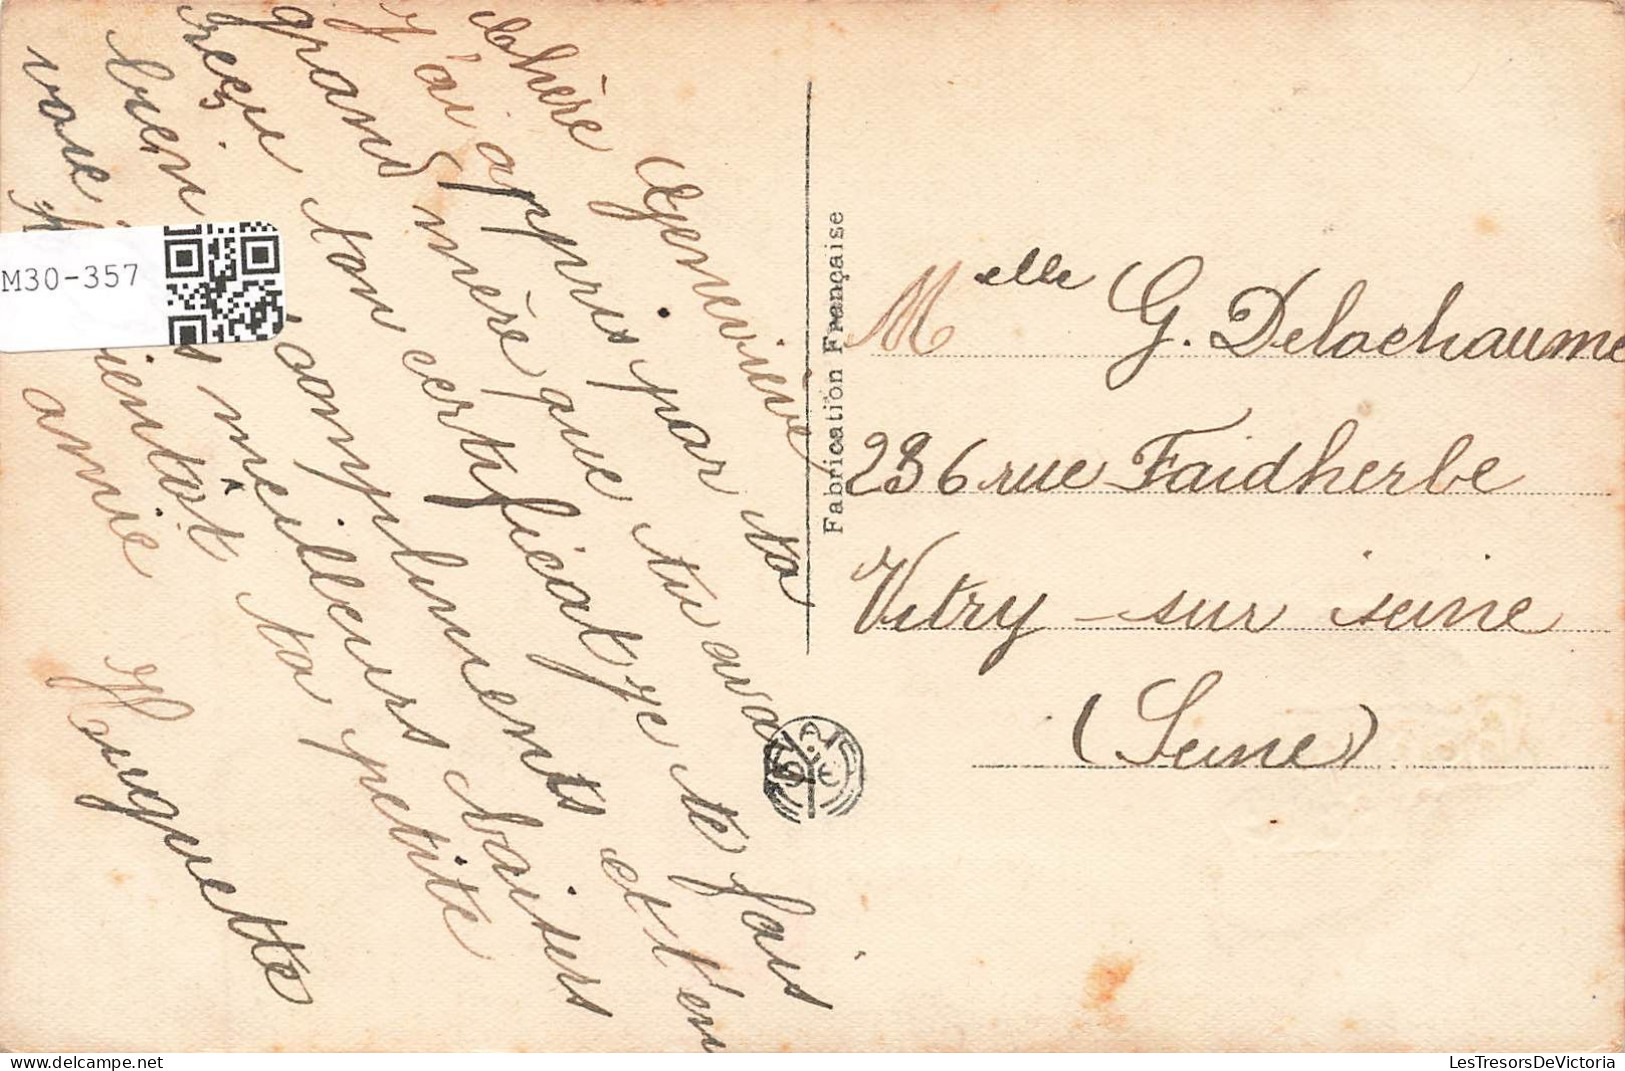 Chère Geneviève
J'ai appris par ta
grand mère que tu avais
reçu ton certificat je te fais
bien compliments et t'en
voie meilleurs baisers
bientôt ta petite
amie
Huguette
M30-357
Fabrication Française
Melle G. Delachaume
236 rue Faidherbe
Vitry-sur seine
(Seine)
LesTresorsDeVictoria